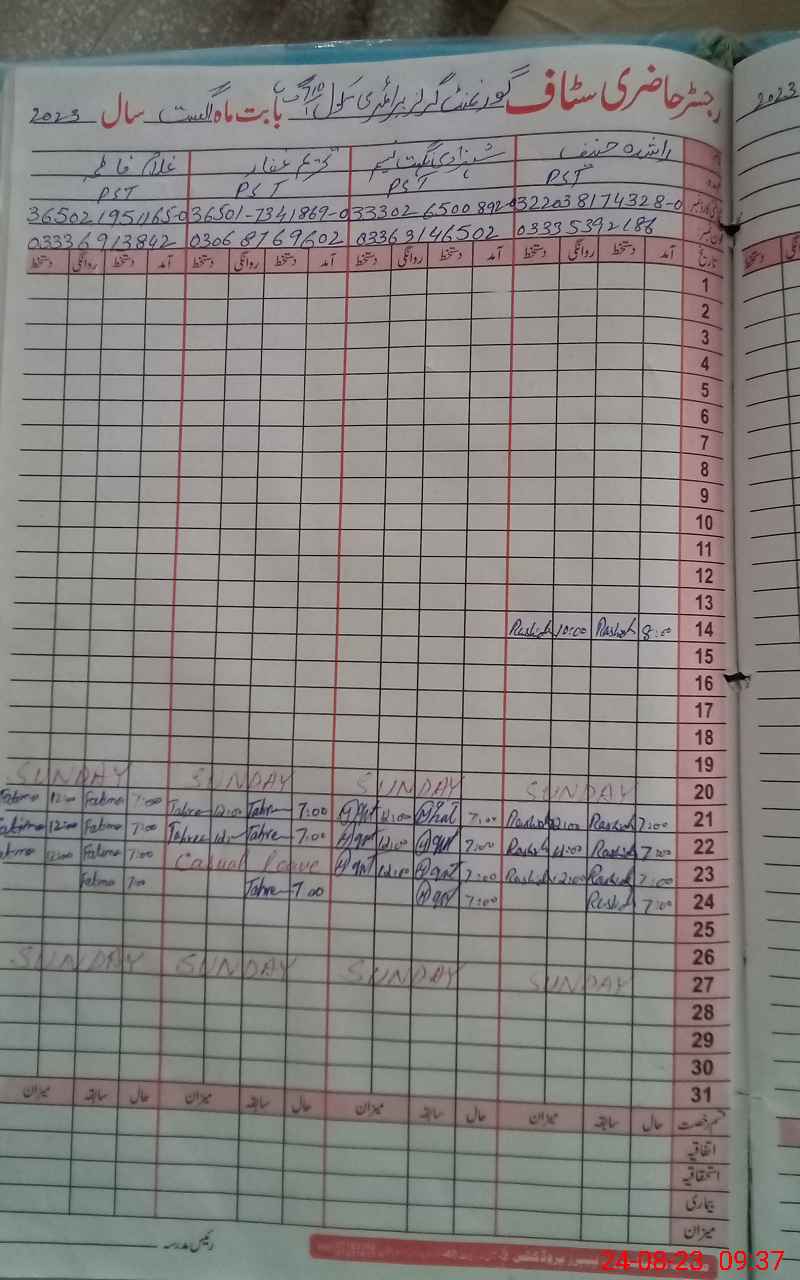 رجسٹر حاضری سٹاف گورنمنٹ گرلز پرائمری سکول بابت ماہ اگست سال 2023
نام راشدہ حنیف شہزادی نگہت نسیم تحریم غفار غلام فاطمہ
عہدہ PST PST PST PST
322038174328-0 333026500892-0 36501-7341869-0 365021951165-0
فون نمبر 03335392186 03363146502 03068769602 03336913842
تاریخ آمد دستخط روانگی دستخط آمد دستخط روانگی دستخط آمد دستخط روانگی دستخط آمد دستخط روانگی دستخط
1
2
3
4
5
6
7
8
9
10
11
12
13
14 8:00 Rashida 10:00 Rashida
15
16
17
18
19
20 SUNDAY SUNDAY SUNDAY SUNDAY
21 7:00 Rashida 12:00 Rashida 7:00 Nghat 12:00 Nghat 7:00 Tahreem 12:00 Tahreem 7:00 Fatima 12:00 Fatima
22 7:00 Rashida 12:00 Rashida 7:00 Nghat 12:00 Nghat 7:00 Tahreem 12:00 Tahreem 7:00 Fatima 12:00 Fatima
23 7:00 Rashida 12:00 Rashida 7:00 Nghat 12:00 Nghat Casual leave 7:00 Fatima 12:00 Fatima
24 7:00 Rashida 7:00 Nghat 7:00 Tahreem 7:00 Fatima
25
26
27 SUNDAY SUNDAY SUNDAY SUNDAY
28
29
30
31
قسم رخصت حال سابقہ میزان حال سابقہ میزان حال سابقہ میزان حال سابقہ میزان
اتفاقیہ
استحقاقیہ
بیماری
میزان
رئیس مدرسہ
24-08-23 09:37
2023